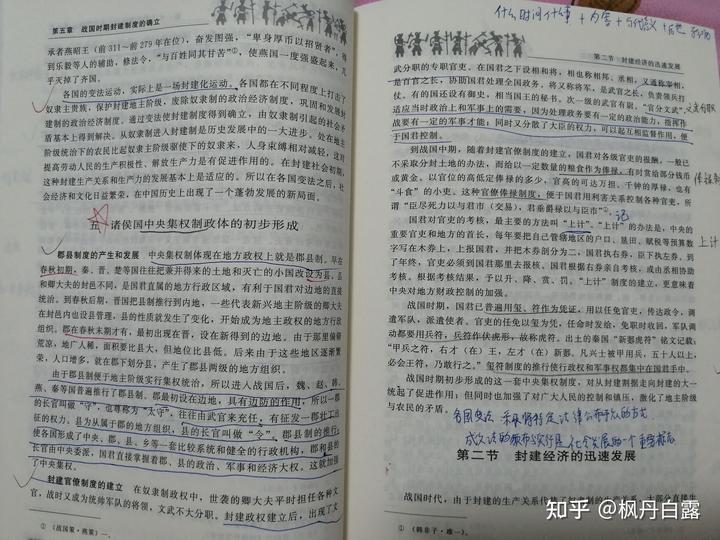 第五章　战国时期封建制度的确立
承者燕昭王（前311—前279年在位），奋发图强，“卑身厚币以招贤者”，得
到乐毅等人的辅助，修法令，“与百姓同其甘苦”①，使燕国一度强盛起来，几
乎灭掉了齐国。
各国的变法运动，实际上是一场封建化运动。各国都在不同程度上打击了
奴隶主贵族，保护封建地主阶级，废除奴隶制的政治经济制度，巩固和发展封
建制的政治经济制度。通过变法使封建制度得到确立，由奴隶制引起的社会矛
盾基本上得到解决。从奴隶制进入封建制是历史发展中的一大进步。处在地主
阶级统治下的农民比起奴隶主阶级驱使下的奴隶来，人身束缚相对减轻，这对
提高劳动人民的生产积极性、解放生产力是有促进作用的。在封建社会初期，
这种封建生产关系和生产力的发展基本上是适应的。所以在各国变法之后，社
会经济和文化日益繁荣，在中国历史上出现了一个蓬勃发展的新局面。
五　诸侯国中央集权制政体的初步形成
郡县制度的产生和发展　中央集权体现在地方政权上就是郡县制。早在
春秋初期，秦、晋、楚等国往往把兼并得来的土地和灭亡的小国改设为县。县
和卿大夫的封邑不同，是国君直属的地方行政区域，有利于国君对边地的直接
统治。到春秋后期，晋国把县制推行到内地，一些代表新兴地主阶级的卿大夫
在封邑内也设县管理，县的性质就发生了变化，开始成为地主政权的地方行政
组织。郡在春秋末期才有，最初出现在晋，设在新得到的边地。由于那里偏僻
荒凉，地广人稀，面积要比县大，但地位比县低。后来由于这些地区逐渐繁
荣，人口增多，就在郡下划分县，产生了郡县两级的地方组织。
由于郡县制便于地主阶级实行集权统治，所以进入战国后，魏、赵、韩、
燕、秦等国普遍推行了郡县制。郡最初设在边地，具有边防的作用，所以一郡
的长官叫做“守”，也尊称为“太守”，往往由武官来充任，有征发一郡壮丁出
征的权力。县为从属于郡的地方组织，县的长官叫做“令”。郡县制的推行，
使各国形成了中央、郡、县、乡等一套比较系统和健全的行政机构，郡和县的
长官由中央委派，国君直接掌握着郡、县的政治、军事和经济大权。这就加强
了中央集权。
封建官僚制度的建立　在奴隶制政权中，世袭的卿大夫平时担任各种文
官，战时又成为统帅军队的将领，文武不大分职。封建政权建立后，出现了文
①　《战国策·燕策》一。
什么时间什么事 + 内容 +
第二节　封建经济的迅速发展
武分职的专职官吏。在国君之下设相和将，相也称相邦、丞相，又通称宰相，
是百官之长，协助国君处理全国政务，将又称将军，是武官之长，负责领兵打
仗。有的国还设有御史，相当国王的秘书。次一级的武官有尉。“官分文武”，
适应当时政治上和军事上的需要，因为处理政务要有一定的政治能力，指挥作
战要有一定的军事才能；同时又分散了大臣的权力，可以起互相监督作用，便
于国君控制。
到战国中期，随着封建官僚制度的建立，国君对各级官吏的报酬，一般已
不采取分封土地的办法，而给以一定数量的粮食作为俸禄，有时赏给部分钱币
或黄金。以官位的高低定俸禄的多少，官高的可达万担、千钟的厚禄，也有
“斗食”的小吏。这种官僚俸禄制度，便于国君用利害关系控制各种官吏，所
谓“臣尽死力以与君市（交易），君垂爵禄以与臣市”①。
国君对官吏的考核，最主要的方法叫“上计”。“上计”的办法是，中央的
重要官吏和地方的首长，每年要把自己管辖地区的户口、垦田、赋税等预算数
字写在木券上，上报国君，并把木券剖分为二，国君执右券，臣下执左券，到
了年终，官吏必须到国君那里去报核，国君根据右券亲自考核，或由丞相协助
考核。根据考核结果，予以升、降、赏、罚。“上计”制度的建立，更意味着
中央对地方财政控制的加强。
上计
战国时期，国君已普遍用玺、符作为凭证，用以任命官吏，传达政令，调
遣军队，派遣使者。官吏的任免以玺为凭，任命时发给，免职时收回，军队调
动都要用兵符，兵符作伏虎形，故称虎符。出土的秦国“新郪虎符”铭文记载：
“甲兵之符，右才（在）王，左才（在）新郪。凡兴士被甲用兵，五十人以上，
必会王符，乃敢行之。”玺符制度的推行使行政权和军事权都集中在国君手中。
战国时期初步形成的这一套中央集权制度，对从封建割据走向封建的大一
统起了促进作用；但同时也加强了对广大人民的控制和镇压，激化了地主阶级
与农民的矛盾。
第二节　封建经济的迅速发展
战国时代，由于封建的生产关系代替了奴隶制的生产关系，大部分直接生
①　《韩非子·难一》。
知乎 @枫丹白露